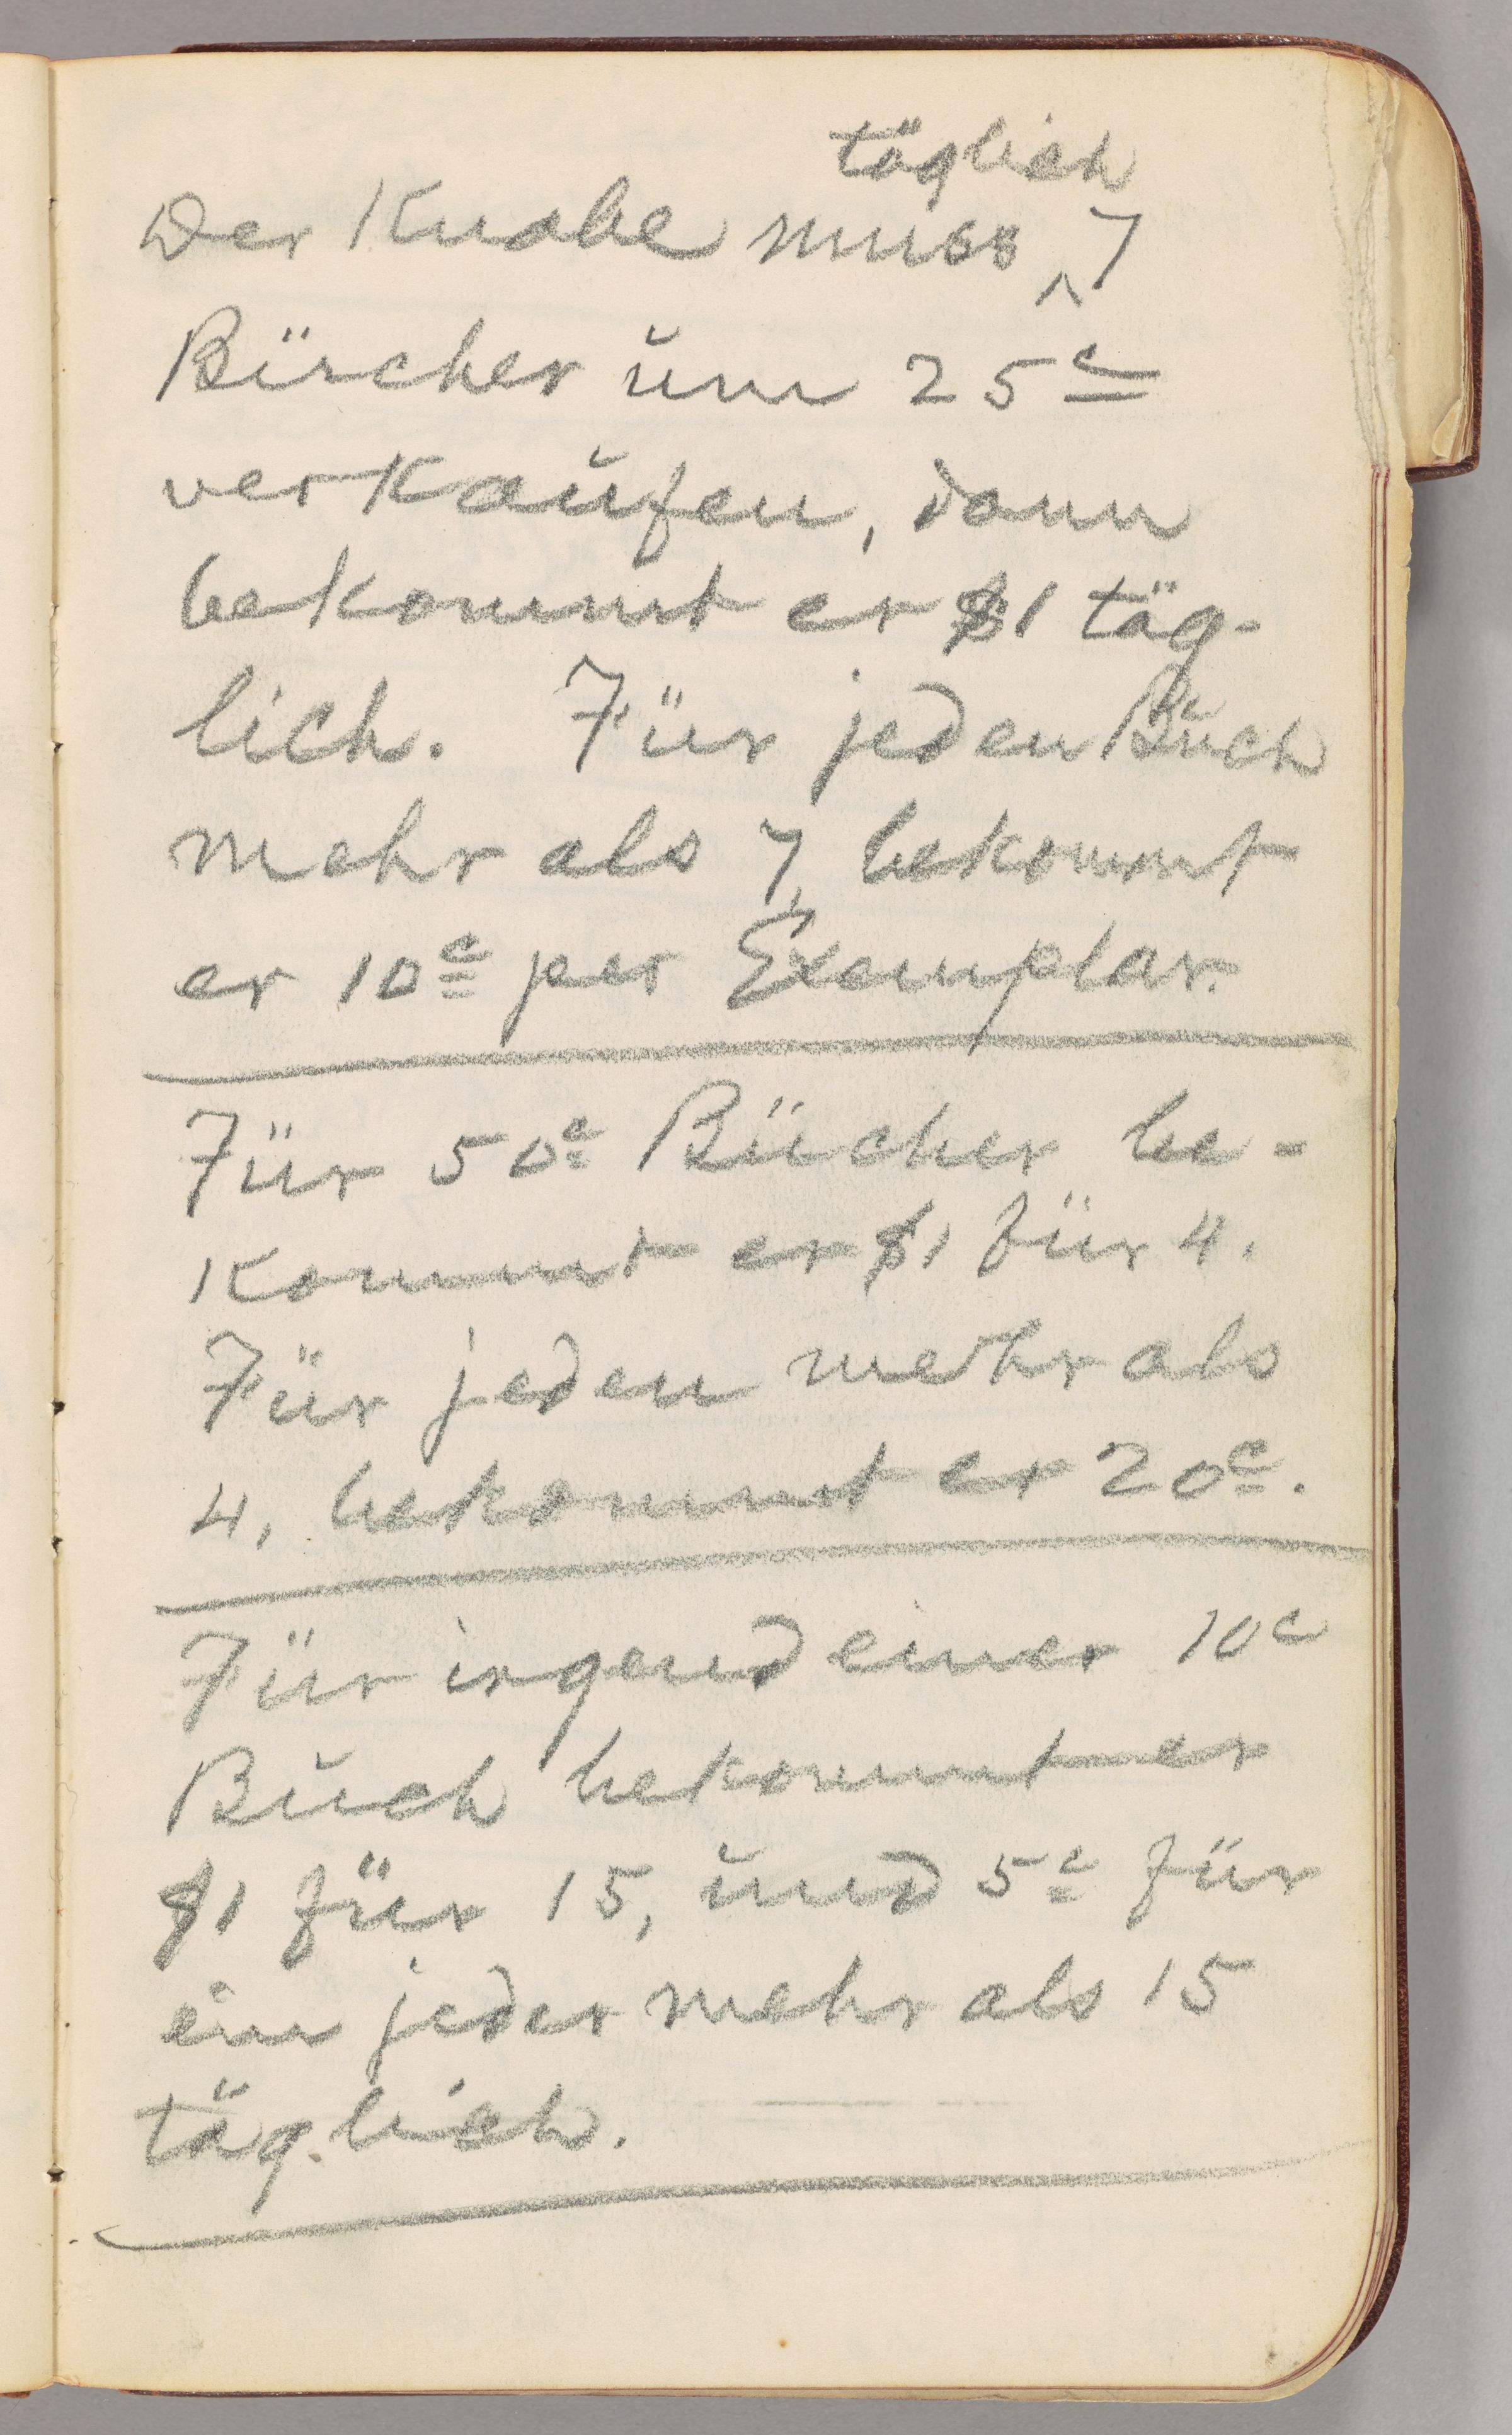 täglich
Der Knabe muss ^ 7
Bücher um 25c
verkaufen, dann
bekommt er $1 täg-
lich. Für jeden Buch
mehr als 7, bekommt
er 10c per Exemplar.
Für 50c Bücher be-
kommt er $1 für 4.
Für jeden mehr als
4, bekommt er 20c.
Für irgend einer 10c
Buch bekommt er
$1 für 15, und 5c für
ein jeder mehr als 15
täglich.